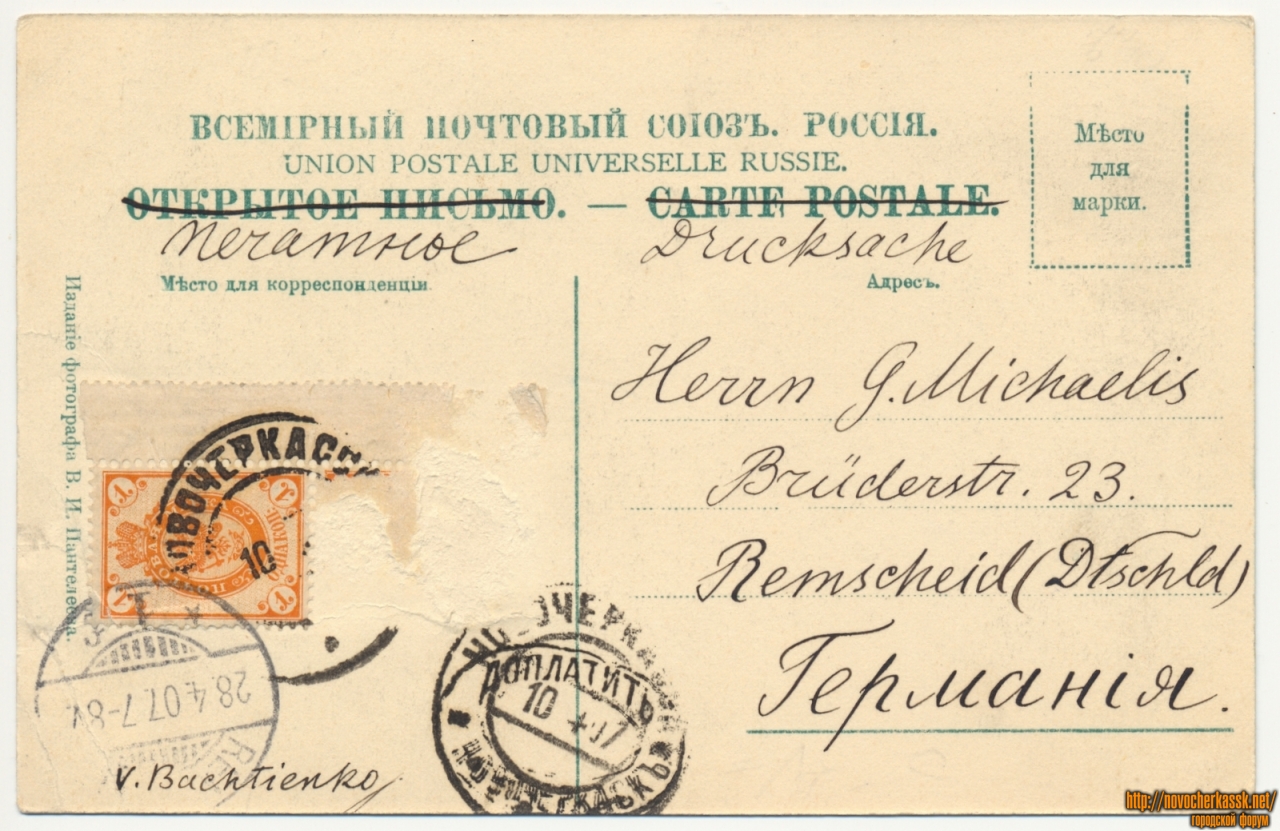 ВСЕМІРНЫЙ ПОЧТОВЫЙ СОЮЗЪ. РОССІЯ.
UNION POSTALE UNIVERSELLE RUSSIE.
ОТКРЫТОЕ ПИСЬМО. — CARTE POSTALE.
Печатное Drucksache
Мѣсто
для
марки.
Мѣсто для корреспонденціи.
Адресъ.
Изданіе фотографа В. И. Пантелеева.
Herrn G. Michaelis
Brüderstr. 23.
Remscheid (Dtschld)
Германія.
НОВОЧЕРКАССК
10
1
НОВОЧЕРКАССК
ДОПЛАТИТЬ
10 4 07
НОВОЧЕРКАСКЪ
28.4.07.7-8V.
v. Bachtienko
http://novocherkassk.net/
городской форум